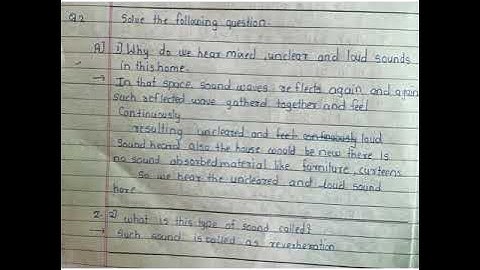 Q2 Solve the following question.
A] 1) Why do we hear mixed, unclear and loud sounds
in this home.
→ In that space sound waves reflects again and again
such reflected wave gatherd together and feel
Continuously
resulting uncleared and feel continuously loud
sound heard also the house would be new there is
no sound absorbed material like furniture, curteens
So we hear the uncleared and loud sound
here
2. 2) what is this type of sound called?
→ Such sound is called as reverberation